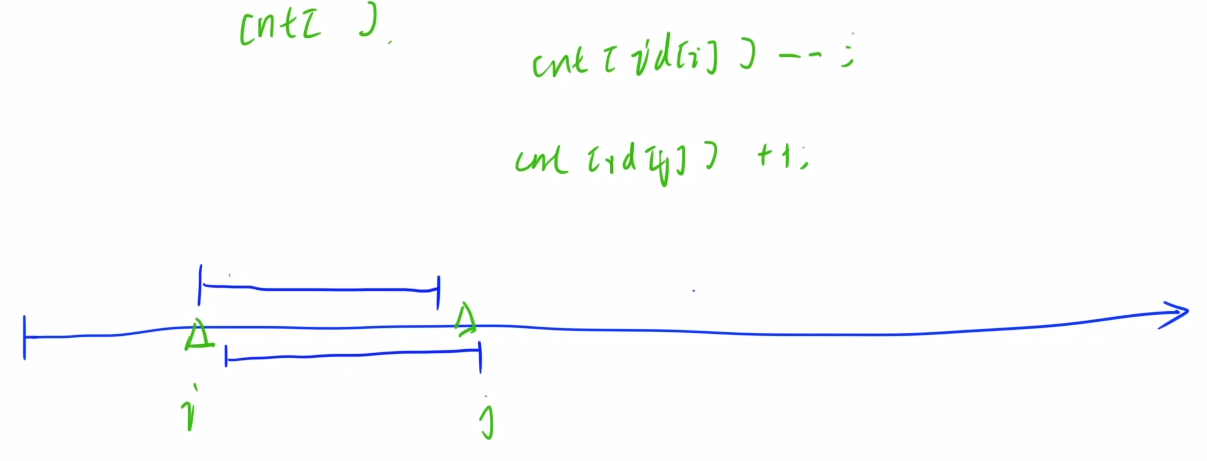 cnt[ ].
cnt[id[i]]--;
cnt[id[j]] +1;
i j